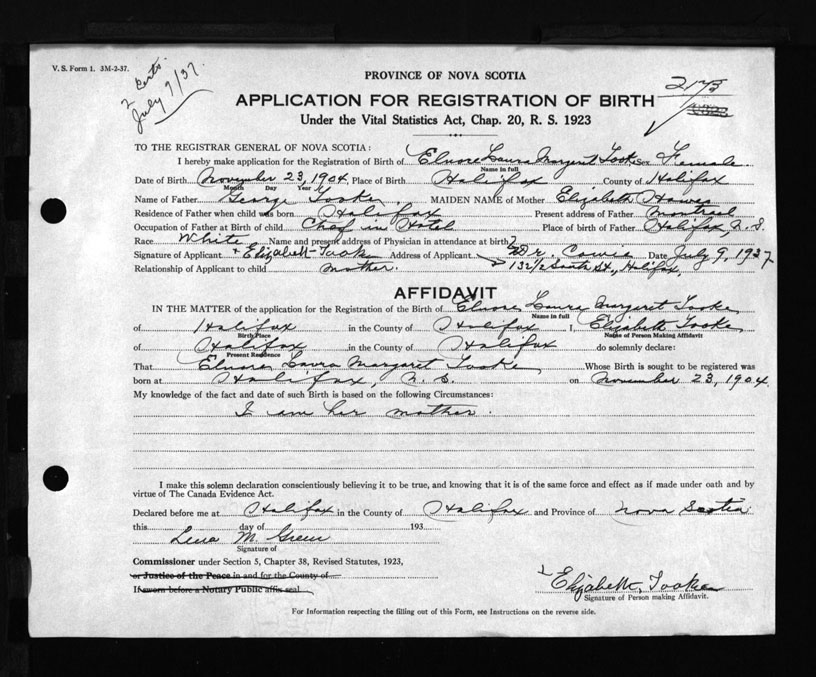 V. S. Form 1. 3M-2-37.
2 Certs.
July 9/37.
PROVINCE OF NOVA SCOTIA
APPLICATION FOR REGISTRATION OF BIRTH
Under the Vital Statistics Act, Chap. 20, R. S. 1923
TO THE REGISTRAR GENERAL OF NOVA SCOTIA:
I hereby make application for the Registration of Birth of Elnore Laura Margaret Tooke Sex Female
Name in full
Date of Birth November 23, 1904, Place of Birth Halifax County of Halifax
Month Day Year
Name of Father George Tooke MAIDEN NAME of Mother Elizabeth
Residence of Father when child was born Halifax Present address of Father Montreal
Occupation of Father at Birth of child Chef in Hotel Place of birth of Father Halifax, N.S.
Race White Name and present address of Physician in attendance at birth?
Signature of Applicant Elizabeth Tooke Address of Applicant Dr. Cowie Date July 9, 1937
Relationship of Applicant to child mother. 132 1/2 South St, Halifax.
AFFIDAVIT
IN THE MATTER of the application for the Registration of the Birth of Elnore Laura Margaret Tooke
Name in full
of Halifax in the County of Halifax I, Elizabeth Tooke
Birth Place Name of Person Making Affidavit
of Halifax in the County of Halifax do solemnly declare:
Present Residence
That Elnore Laura Margaret Tooke Whose Birth is sought to be registered was
born at Halifax, N. S. on November 23, 1904
My knowledge of the fact and date of such Birth is based on the following Circumstances:
I am her mother.
I make this solemn declaration conscientiously believing it to be true, and knowing that it is of the same force and effect as if made under oath and by
virtue of The Canada Evidence Act.
Declared before me at Halifax in the County of Halifax and Province of Nova Scotia
this day of 193
Lena M. Green
Signature of
Commissioner under Section 5, Chapter 38, Revised Statutes, 1923,
or Justice of the Peace in and for the County of
If sworn before a Notary Public affix seal
Elizabeth Tooke
Signature of Person making Affidavit.
For Information respecting the filling out of this Form, see Instructions on the reverse side.